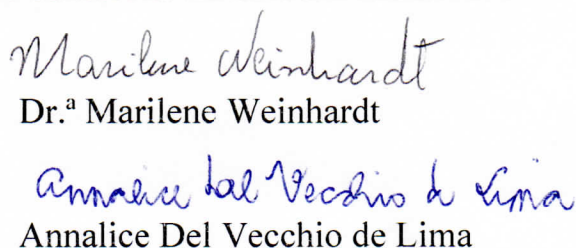 Marilene Weinhardt
Dr.ª Marilene Weinhardt
Annalice Dal Vecchio de Lima
Annalice Del Vecchio de Lima